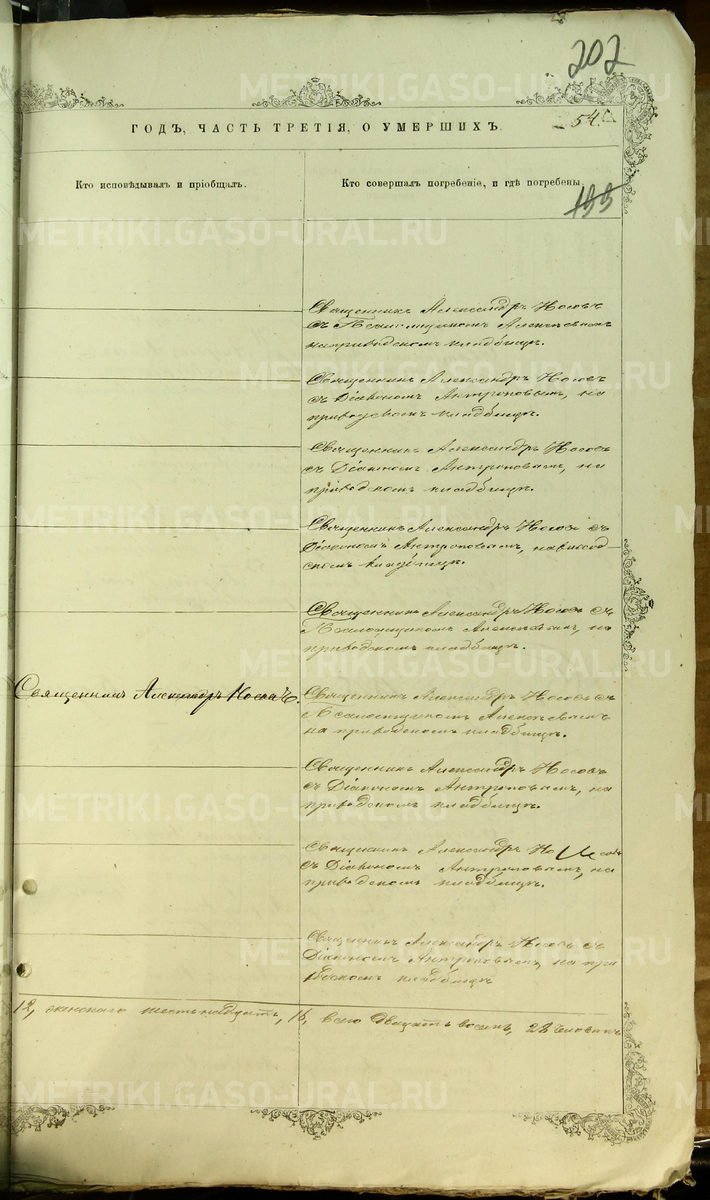 202
ГОДЪ, ЧАСТЬ ТРЕТІЯ, О УМЕРШИХЪ.
54.
Кто исповѣдывалъ и пріобщалъ.
Кто совершалъ погребеніе, и гдѣ погребены.
199
Священникъ Александръ Носовъ
съ Псаломщикомъ Алексѣевымъ
на приходскомъ кладбищѣ.
Священникъ Александръ Носовъ
съ Діакономъ Антроповымъ, на
приходскомъ кладбищѣ.
Священникъ Александръ Носовъ
съ Діакономъ Антроповымъ, на
приходскомъ кладбищѣ.
Священникъ Александръ Носовъ съ
Діакономъ Антроповымъ,
скомъ кладбищѣ.
Священникъ Александръ Носовъ съ
Псаломщикомъ Алексѣевымъ, на
приходскомъ кладбищѣ.
Священникъ Александръ Носовъ.
Священникъ Александръ Носовъ съ
Псаломщикомъ Алексѣевымъ
на приходскомъ кладбищѣ.
Священникъ Александръ Носовъ
съ Діакономъ Антроповымъ, на
приходскомъ кладбищѣ.
Священникъ Александръ Носовъ
съ Діакономъ Антроповымъ, на
приходскомъ кладбищѣ.
Священникъ Александръ Носовъ съ
Діакономъ Антроповымъ, на при
ходскомъ кладбищѣ
12, женскаго шестьнадцать, 16, всего двацать восемь, 28 человѣкъ
METRIKI.GASO-URAL.RU